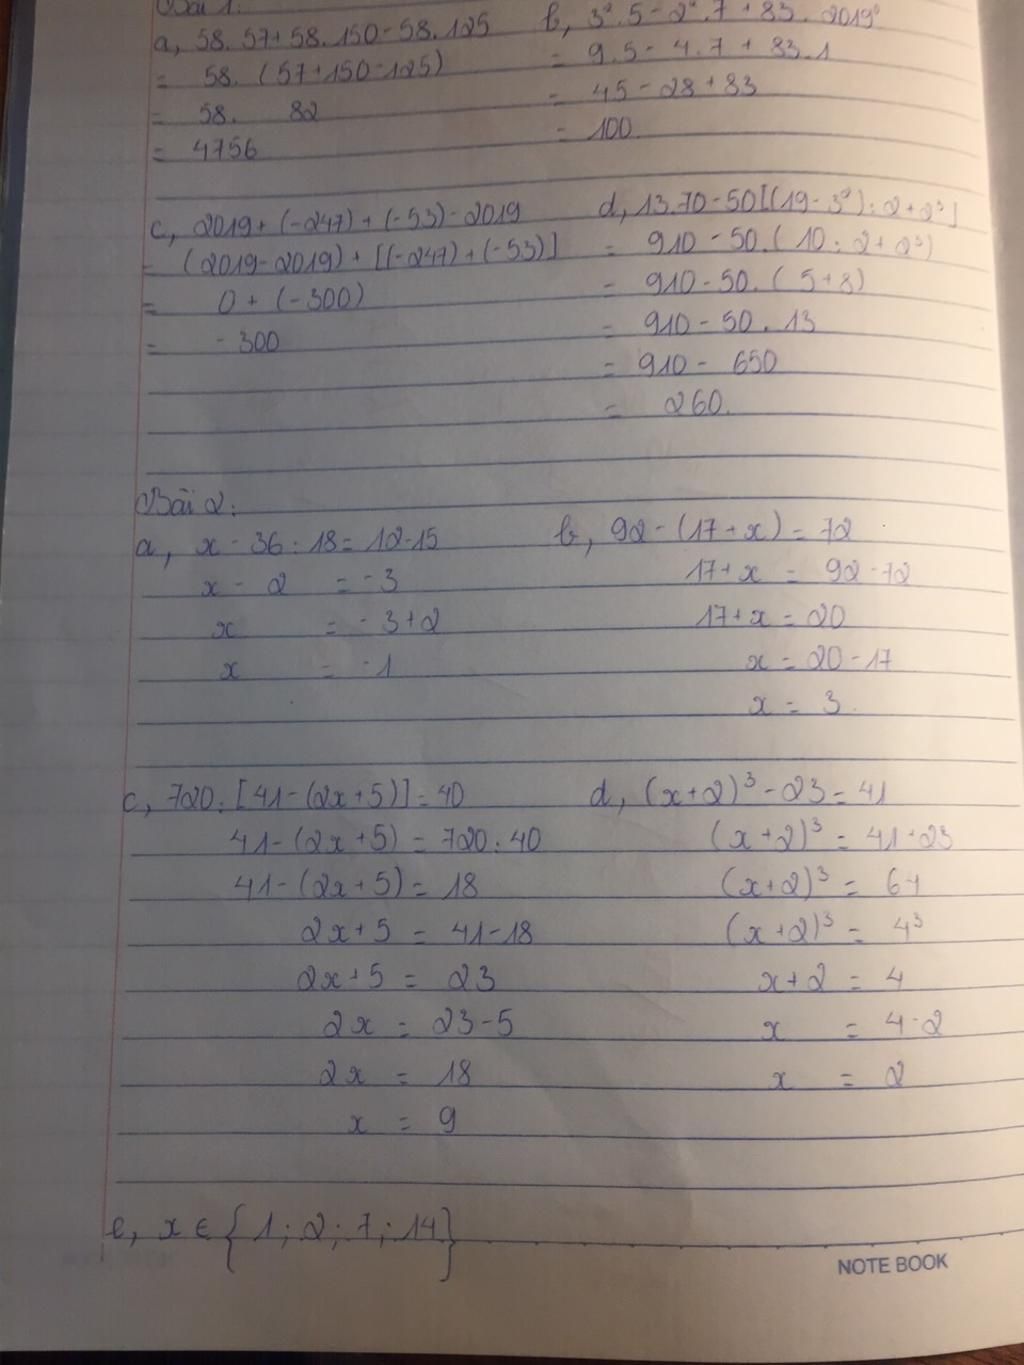 Bài 1:
a, 58.57+58.150-58.125
= 58.(57+150-125)
= 58. 82
= 4756
b, 3².5-2².7+83.2019⁰
= 9.5-4.7+83.1
= 45-28+83
= 100
c, 2019+(-247)+(-53)-2019
= (2019-2019)+[(-247)+(-53)]
= 0+(-300)
= -300
d, 13.70-50[(19-3²):2+2³]
= 910-50.(10:2+2³)
= 910-50.(5+8)
= 910-50.13
= 910- 650
= 260.
Bài 2:
a, x-36:18=12-15
x-2 = -3
x = -3+2
x = -1
b, 92-(17+x)=72
17+x = 92-72
17+x = 20
x = 20-17
x = 3.
c, 720:[41-(2x+5)]=40
41-(2x+5) = 720:40
41-(2x+5) = 18
2x+5 = 41-18
2x+5 = 23
2x = 23-5
2x = 18
x = 9
d, (x+2)³-23=41
(x+2)³ = 41+23
(x+2)³ = 64
(x+2)³ = 4³
x+2 = 4
x = 4-2
x = 2
e, x ∈ {1; 2; 7; 14}
NOTE BOOK